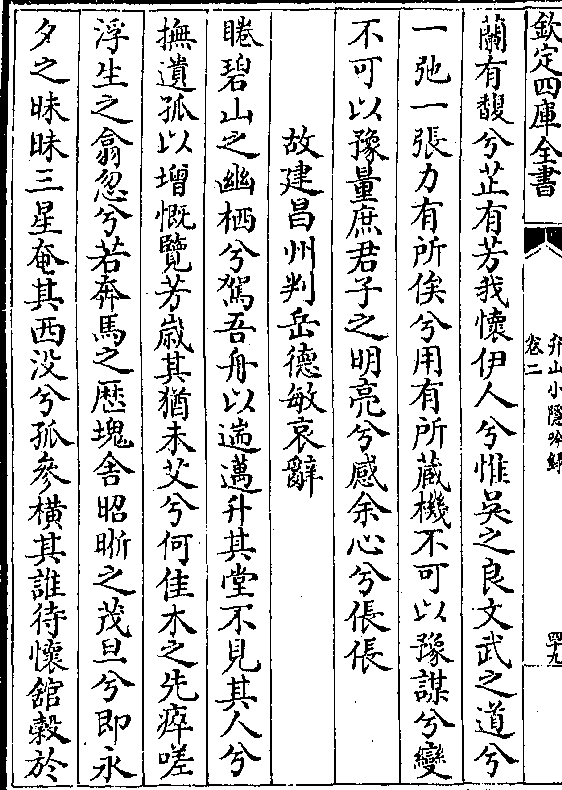 欽定四庫全書
弁山小隱吟録
卷二
四十九
蘭有馥兮芷有芳我懷伊人兮惟吳之良文武之道兮
一弛一張力有所俟兮用有所藏機不可以豫謀兮變
不可以豫量庶君子之明亮兮感余心兮倀倀
故建昌州判岳德敏哀辭
睠碧山之幽栖兮駕吾舟以遄邁升其堂不見其人兮
撫遺孤以增慨覽芳嵗其猶未艾兮何佳木之先瘁嗟
浮生之翕忽兮若奔馬之歴塊舍昭晣之茂旦兮即永
夕之昧昧三星奄其西没兮孤參横其誰待懷舘榖於